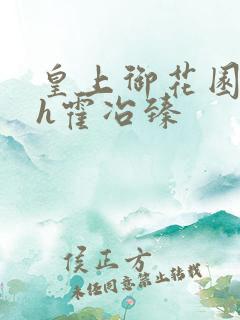 皇上御花园
h霍冶臻
侯正方
未经同意禁止转载